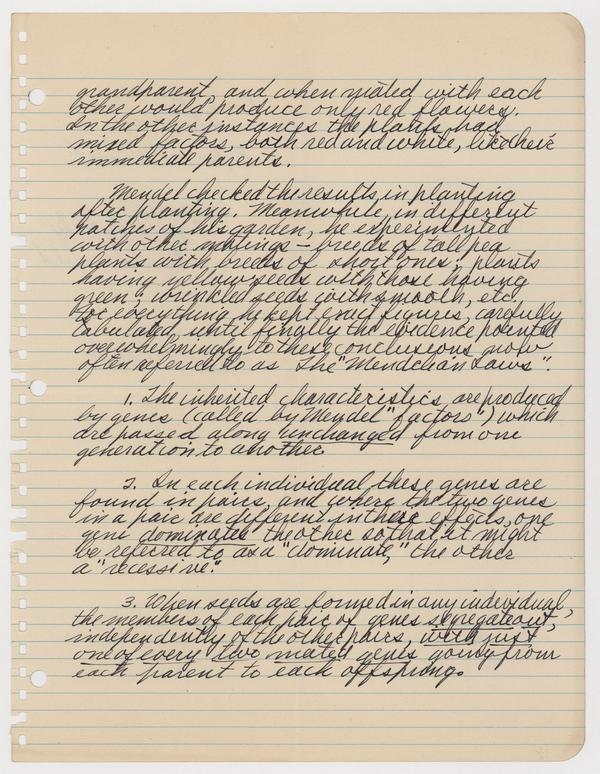 grandparent, and when mated with each
other would produce only red flowers.
In the other instances the plants had
mixed factors, both red and white, like their
immediate parents.
Mendel checked the results in planting
after planting. Meanwhile, in different
patches of his garden, he experimented
with other matings – breeds of tall pea
plants with breeds of short ones; plants
having yellow seeds with those having
green; wrinkled seeds with smooth, etc.
For everything he kept exact figures, carefully
tabulated, until finally the evidence pointed
overwhelmingly to these conclusions, now
often referred to as The "Mendelian Laws".
1. The inherited characteristics are produced
by genes (called by Mendel "factors") which
are passed along unchanged from one
generation to another.
2. In each individual these genes are
found in pairs, and where the two genes
in a pair are different in their effects, one
gene dominates the other so that it might
be referred to as a "dominate," the other
a "recessive."
3. When seeds are formed in any individual,
the members of each pair of genes segregate out,
independently of the other pairs, with just
one of every two mated genes going from
each parent to each offspring.